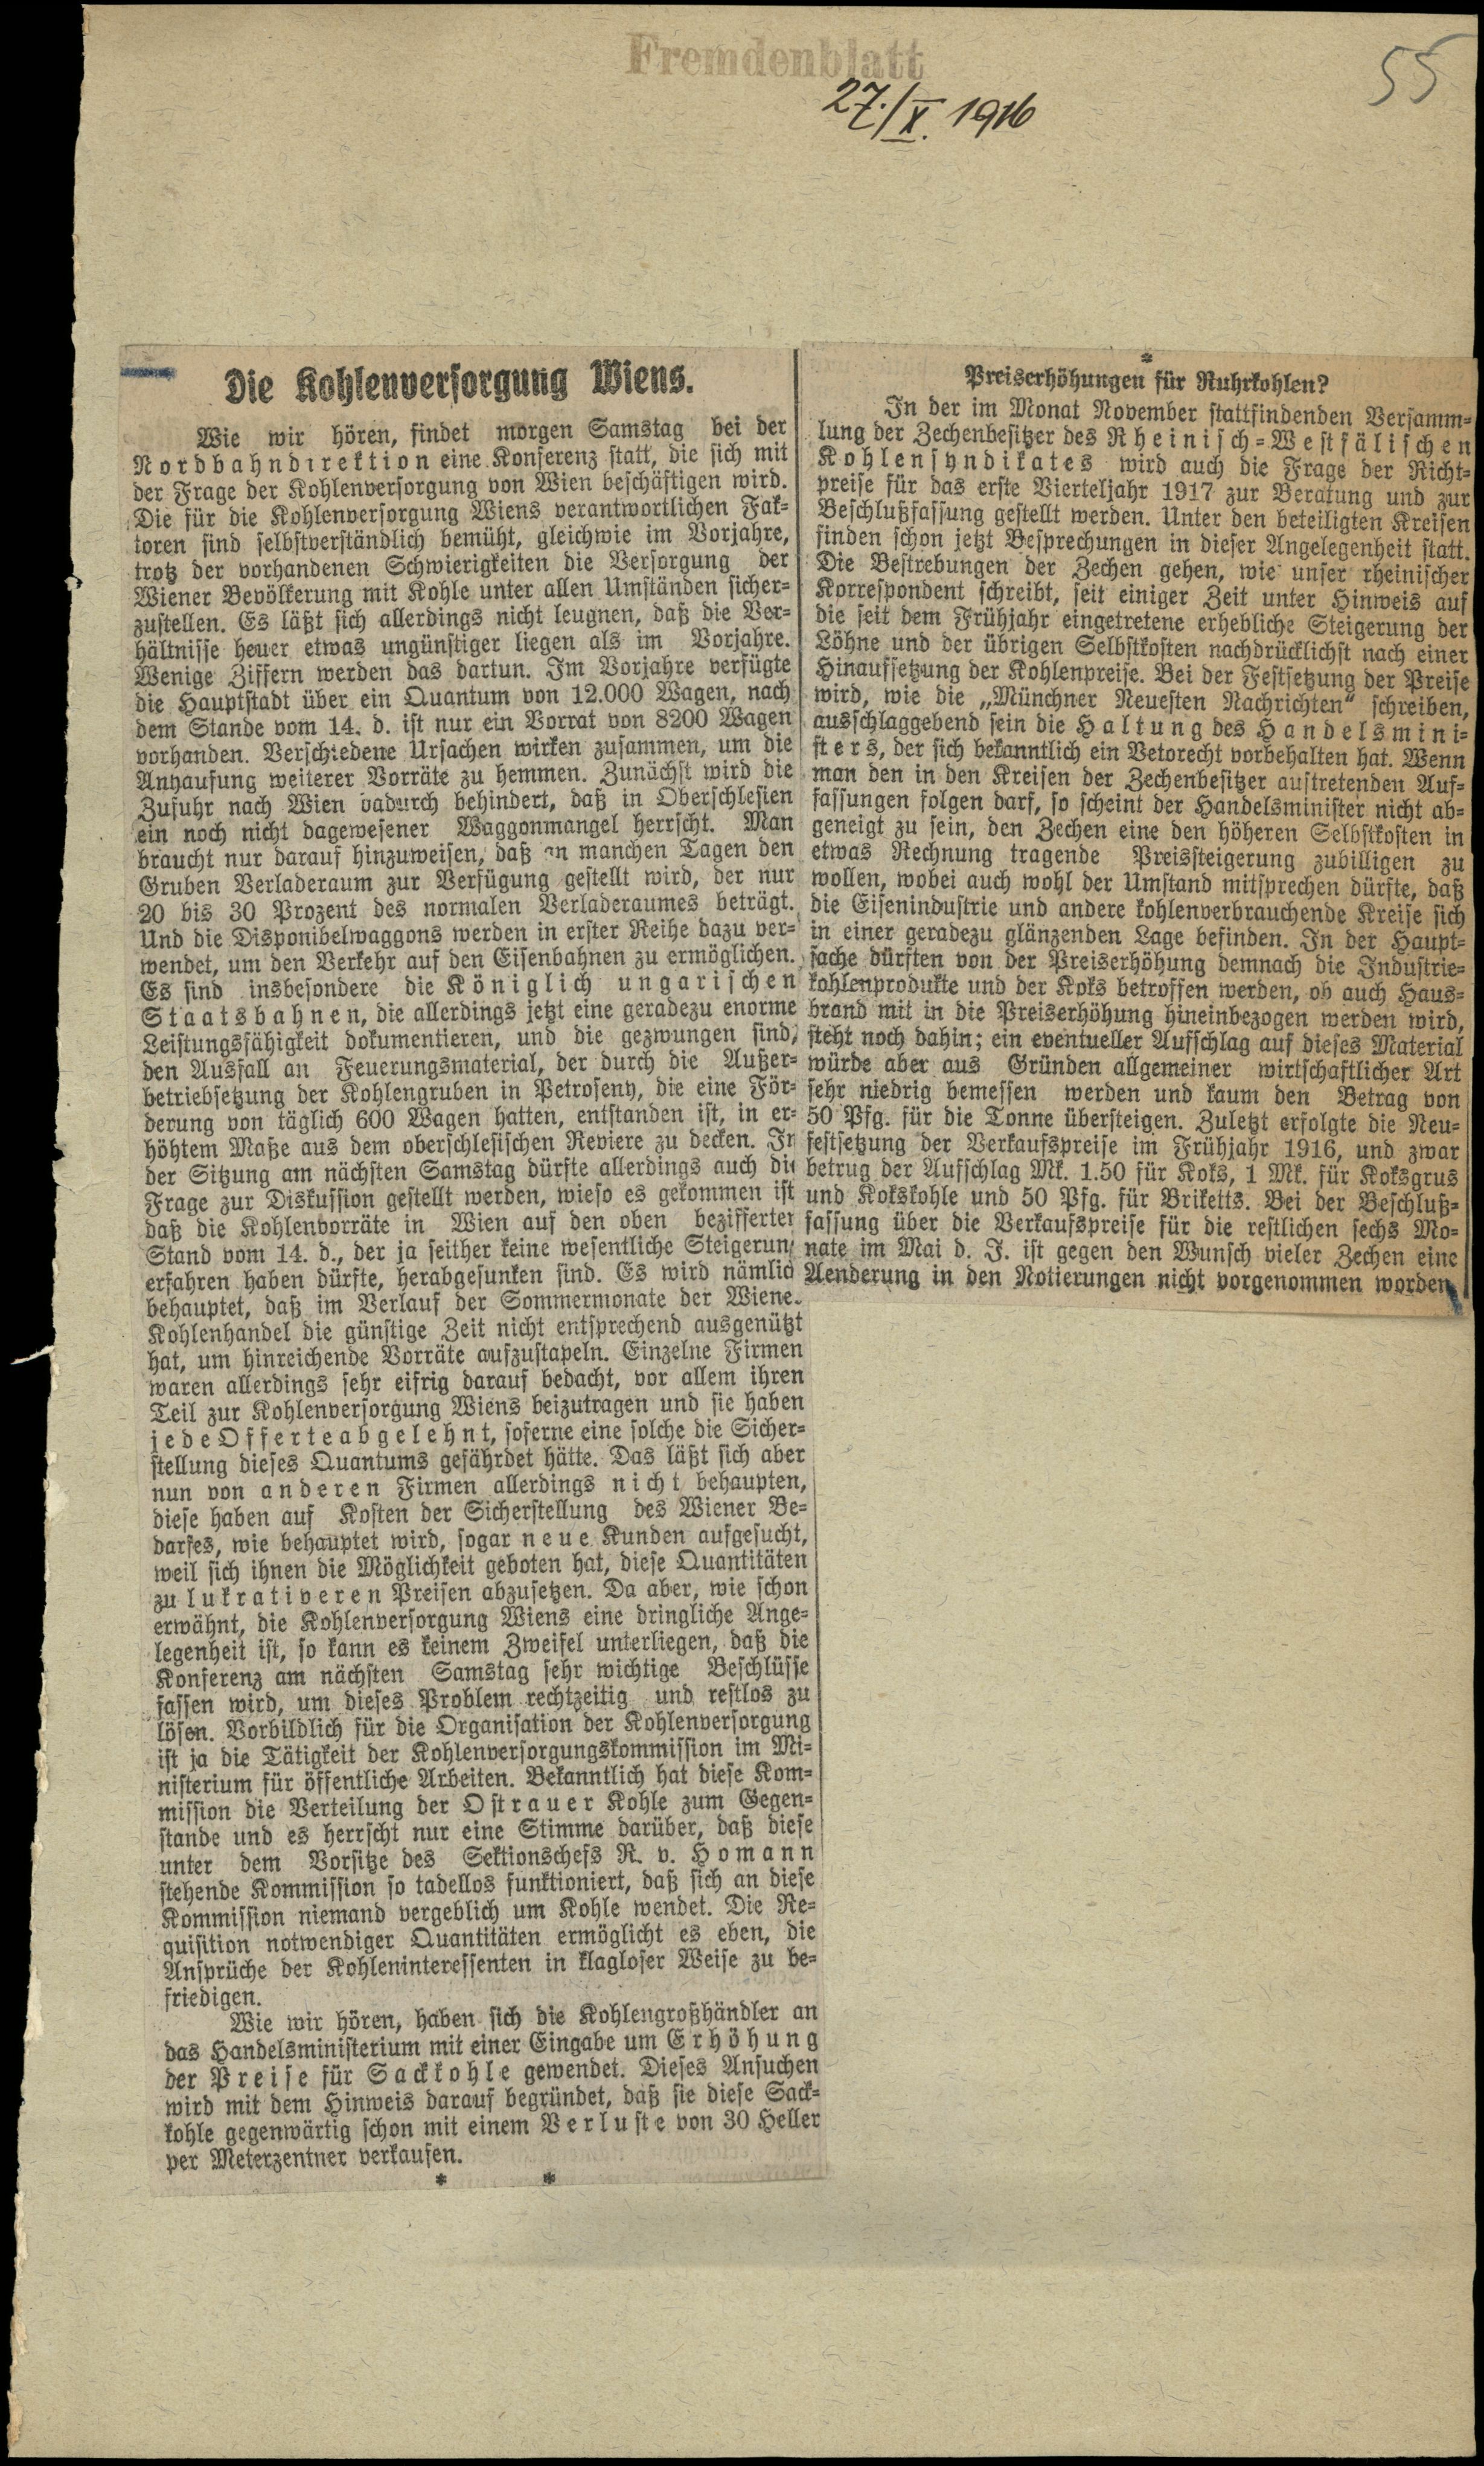 Fremdenblatt
27./X. 1916
55
Die Kohlenversorgung Wiens.
Wie wir hören, findet morgen Samstag bei der
Nordbahndirektion eine Konferenz statt, die sich mit
der Frage der Kohlenversorgung von Wien beschäftigen wird.
Die für die Kohlenversorgung Wiens verantwortlichen Fak-
toren sind selbstverständlich bemüht, gleichwie im Vorjahre,
trotz der vorhandenen Schwierigkeiten die Versorgung der
Wiener Bevölkerung mit Kohle unter allen Umständen sicher-
zustellen. Es läßt sich allerdings nicht leugnen, daß die Ver-
hältnisse heuer etwas ungünstiger liegen als im Vorjahre.
Wenige Ziffern werden das dartun. Im Vorjahre verfügte
die Hauptstadt über ein Quantum von 12.000 Wagen, nach
dem Stande vom 14. d. ist nur ein Vorrat von 8200 Wagen
vorhanden. Verschiedene Ursachen wirken zusammen, um die
Anhäufung weiterer Vorräte zu hemmen. Zunächst wird die
Zufuhr nach Wien dadurch behindert, daß in Oberschlesien
ein noch nicht dagewesener Waggonmangel herrscht. Man
braucht nur darauf hinzuweisen, daß an manchen Tagen den
Gruben Verladeraum zur Verfügung gestellt wird, der nur
20 bis 30 Prozent des normalen Verladeraumes beträgt.
Und die Disponibelwaggons werden in erster Reihe dazu ver-
wendet, um den Verkehr auf den Eisenbahnen zu ermöglichen.
Es sind insbesondere die Königlich ungarischen
Staatsbahnen, die allerdings jetzt eine geradezu enorme
Leistungsfähigkeit dokumentieren, und die gezwungen sind,
den Ausfall an Feuerungsmaterial, der durch die Außer-
betriebsetzung der Kohlengruben in Petroseny, die eine För-
derung von täglich 600 Wagen hatten, entstanden ist, in er-
höhtem Maße aus dem oberschlesischen Reviere zu decken. In
der Sitzung am nächsten Samstag dürfte allerdings auch die
Frage zur Diskussion gestellt werden, wieso es gekommen ist
daß die Kohlenvorräte in Wien auf den oben bezifferten
Stand vom 14. d., der ja seither keine wesentliche Steigerung
erfahren haben dürfte, herabgesunken sind. Es wird nämlich
behauptet, daß im Verlauf der Sommermonate der Wiener
Kohlenhandel die günstige Zeit nicht entsprechend ausgenützt
hat, um hinreichende Vorräte aufzustapeln. Einzelne Firmen
waren allerdings sehr eifrig darauf bedacht, vor allem ihren
Teil zur Kohlenversorgung Wiens beizutragen und sie haben
jede Offerte abgelehnt, soferne eine solche die Sicher-
stellung dieses Quantums gefährdet hätte. Das läßt sich aber
nun von anderen Firmen allerdings nicht behaupten,
diese haben auf Kosten der Sicherstellung des Wiener Be-
darfes, wie behauptet wird, sogar neue Kunden aufgesucht,
weil sich ihnen die Möglichkeit geboten hat, diese Quantitäten
zu lukrativeren Preisen abzusetzen. Da aber, wie schon
erwähnt, die Kohlenversorgung Wiens eine dringliche Ange-
legenheit ist, so kann es keinem Zweifel unterliegen, daß die
Konferenz am nächsten Samstag sehr wichtige Beschlüsse
fassen wird, um dieses Problem rechtzeitig und restlos zu
lösen. Vorbildlich für die Organisation der Kohlenversorgung
ist ja die Tätigkeit der Kohlenversorgungskommission im Mi-
nisterium für öffentliche Arbeiten. Bekanntlich hat diese Kom-
mission die Verteilung der Ostrauer Kohle zum Gegen-
stande und es herrscht nur eine Stimme darüber, daß diese
unter dem Vorsitze des Sektionschefs R. v. Homann
stehende Kommission so tadellos funktioniert, daß sich an diese
Kommission niemand vergeblich um Kohle wendet. Die Re-
quisition notwendiger Quantitäten ermöglicht es eben, die
Ansprüche der Kohleninteressenten in klagloser Weise zu be-
friedigen.
Wie wir hören, haben sich die Kohlengroßhändler an
das Handelsministerium mit einer Eingabe um Erhöhung
der Preise für Sackkohle gewendet. Dieses Ansuchen
wird mit dem Hinweis darauf begründet, daß sie diese Sack-
kohle gegenwärtig schon mit einem Verluste von 30 Heller
per Meterzentner verkaufen.
* *
*
Preiserhöhungen für Ruhrkohlen?
In der im Monat November stattfindenden Versamm-
lung der Zechenbesitzer des Rheinisch-Westfälischen
Kohlensyndikates wird auch die Frage der Richt-
preise für das erste Vierteljahr 1917 zur Beratung und zur
Beschlußfassung gestellt werden. Unter den beteiligten Kreisen
finden schon jetzt Besprechungen in dieser Angelegenheit statt.
Die Bestrebungen der Zechen gehen, wie unser rheinischer
Korrespondent schreibt, seit einiger Zeit unter Hinweis auf
die seit dem Frühjahr eingetretene erhebliche Steigerung der
Löhne und der übrigen Selbstkosten nachdrücklichst nach einer
Hinaufsetzung der Kohlenpreise. Bei der Festsetzung der Preise
wird, wie die „Münchner Neuesten Nachrichten“ schreiben,
ausschlaggebend sein die Haltung des Handelsmini-
sters, der sich bekanntlich ein Vetorecht vorbehalten hat. Wenn
man den in den Kreisen der Zechenbesitzer austretenden Auf-
fassungen folgen darf, so scheint der Handelsminister nicht ab-
geneigt zu sein, den Zechen eine den höheren Selbstkosten in
etwas Rechnung tragende Preissteigerung zubilligen zu
wollen, wobei auch wohl der Umstand mitsprechen dürfte, daß
die Eisenindustrie und andere kohlenverbrauchende Kreise sich
in einer geradezu glänzenden Lage befinden. In der Haupt-
sache dürften von der Preiserhöhung demnach die Industrie-
kohlenprodukte und der Koks betroffen werden, ob auch Haus-
brand mit in die Preiserhöhung hineinbezogen werden wird,
steht noch dahin; ein eventueller Aufschlag auf dieses Material
würde aber aus Gründen allgemeiner wirtschaftlicher Art
sehr niedrig bemessen werden und kaum den Betrag von
50 Pfg. für die Tonne übersteigen. Zuletzt erfolgte die Neu-
festsetzung der Verkaufspreise im Frühjahr 1916, und zwar
betrug der Aufschlag Mk. 1.50 für Koks, 1 Mk. für Koksgrus
und Kokskohle und 50 Pfg. für Briketts. Bei der Beschluß-
fassung über die Verkaufspreise für die restlichen sechs Mo-
nate im Mai d. J. ist gegen den Wunsch vieler Zechen eine
Aenderung in den Notierungen nicht vorgenommen worden